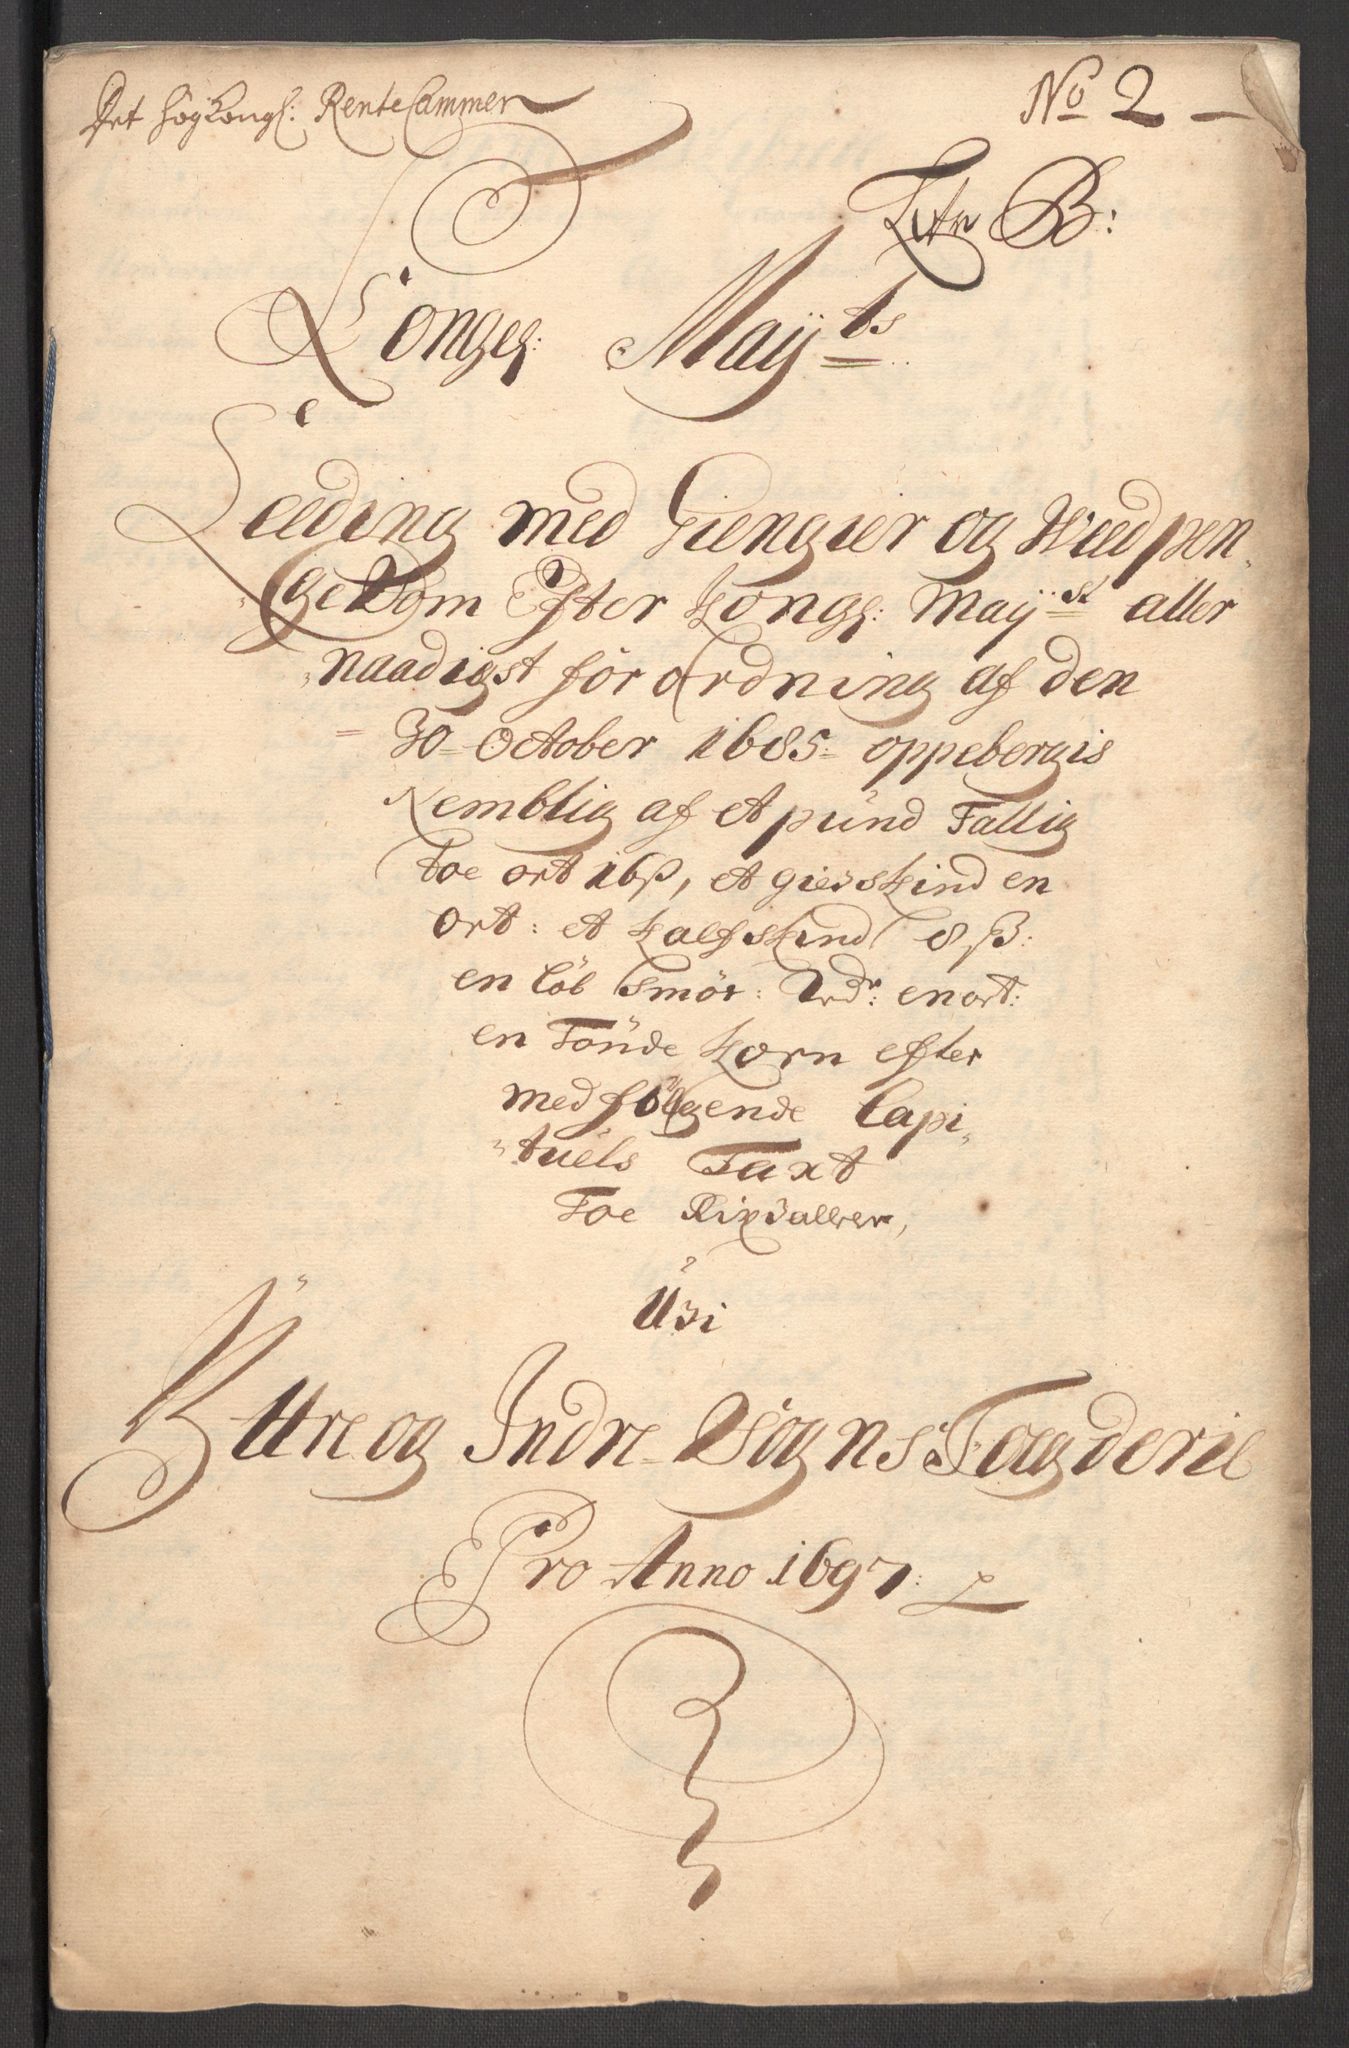 Det höyKongl: RenteCammer
No 2
Litr B:
Kongl: Mayts
Leeding med Giengier og Wiedpen-
ge Som Efter Kongl: Mayst aller
naadigst forordning af den
30 October 1685: oppebergis
Nemblig af et pund Tallig
toe ort 16 β, et giedskind en
ort: et kalfskind 8 β:
en löb Smör: 2 rdr: en ort:
en Tönde Korn efter
medfölgende Capi-
tuels Taxt
Toe Rixdaller,
Udi
Yttre og Indre Sogns Fougderie
Pro Anno 1697: